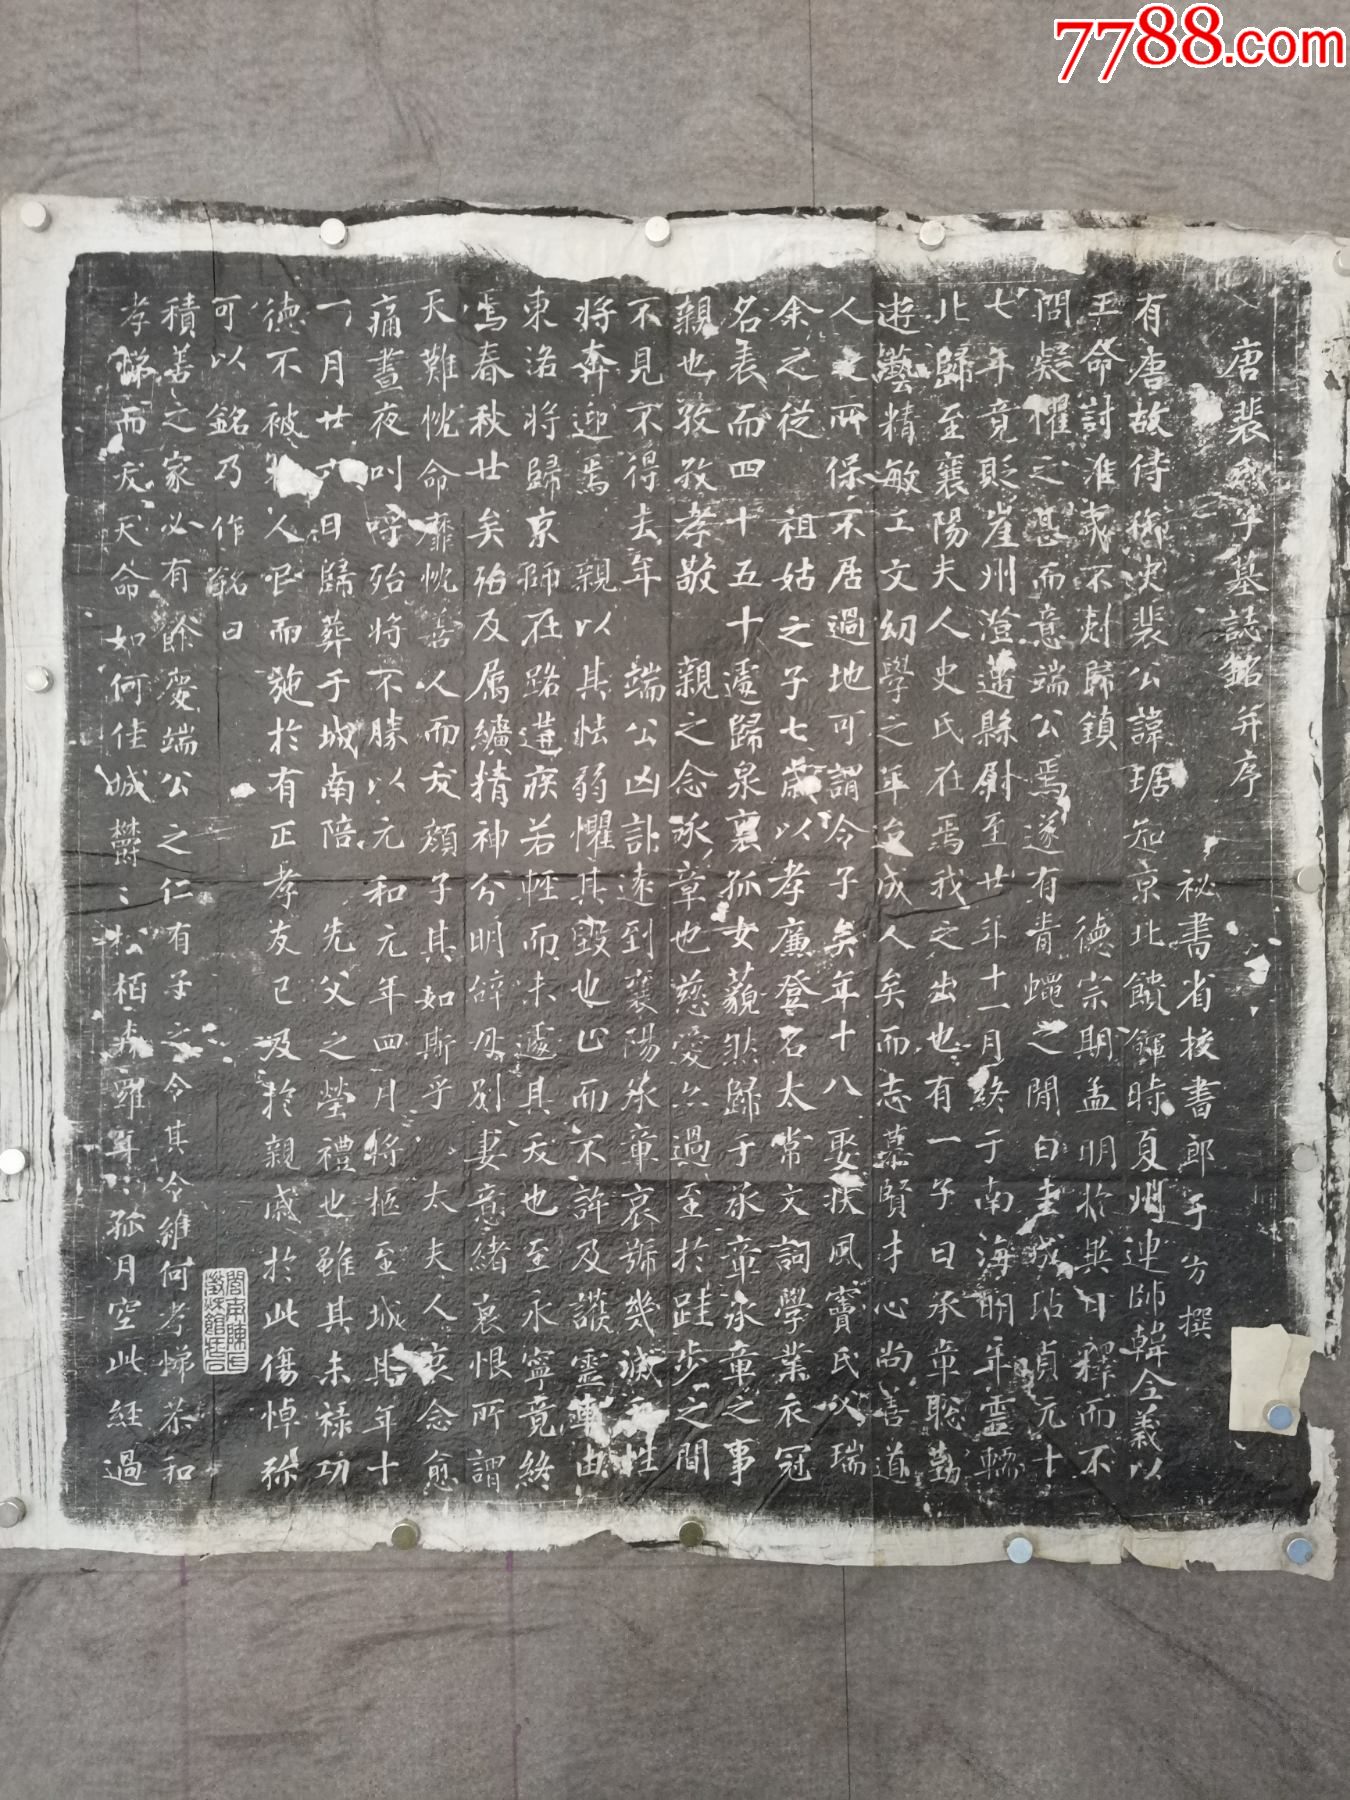 7788.com
唐裴承章墓誌銘并序
祕書省校書郎于方撰
有唐故侍御史裴公諱琚知京北饋鍕時夏州連帥韓全義以
王命討淮夷不剋歸鎮 德宗期孟明於異日釋而不
問疑懼之甚而意端公焉遂有青蠅之間白圭成玷貞元十
七年竟貶崖州澄邁縣尉至廿年十一月終于南海明年靈轜
北歸至襄陽夫人史氏在焉我之出也有一子曰承章聡勤
遊藝精敏工文幼學之年迨成人矣而志慕賢才心尚善道
人之所保不居過地可謂令子矣年十八娶扶風竇氏父瑞
余之從祖姑之子七歲以孝廉登名太常文詞學業衣冠
名表而四十五十遽歸泉裏孤女藐然歸于承章承章之事
親也孜孜孝敬 親之念承章也慈愛亦過至於跬步之間
不見不得去年 端公凶訃遠到襄陽承章哀號幾滅性
將奔迎焉 親以其怯弱懼其毀也止而不許及護靈轝由
東洛將歸京師在路遘疾若輕而未遽其夭也至永寧竟終
焉春秋廿矣殆及属纊精神分明辝母別妻意緒哀恨所謂
天難忱命靡忱善人而夭顔子其如斯乎 太夫人哀念愈
痛晝夜叫呼殆將不勝以元和元年四月將柩至城其年十
一月廿 日歸葬于城南陪 先父之塋禮也雖其未禄功
德不被 人 而施於有正孝友已及於親戚於此傷悼祢
可以銘乃作銘曰
積善之家必有餘慶端公之仁有子之令其令維何孝悌恭和
孝悌而夭天命如何佳城欝〻松栢森羅年〻孤月空此經過